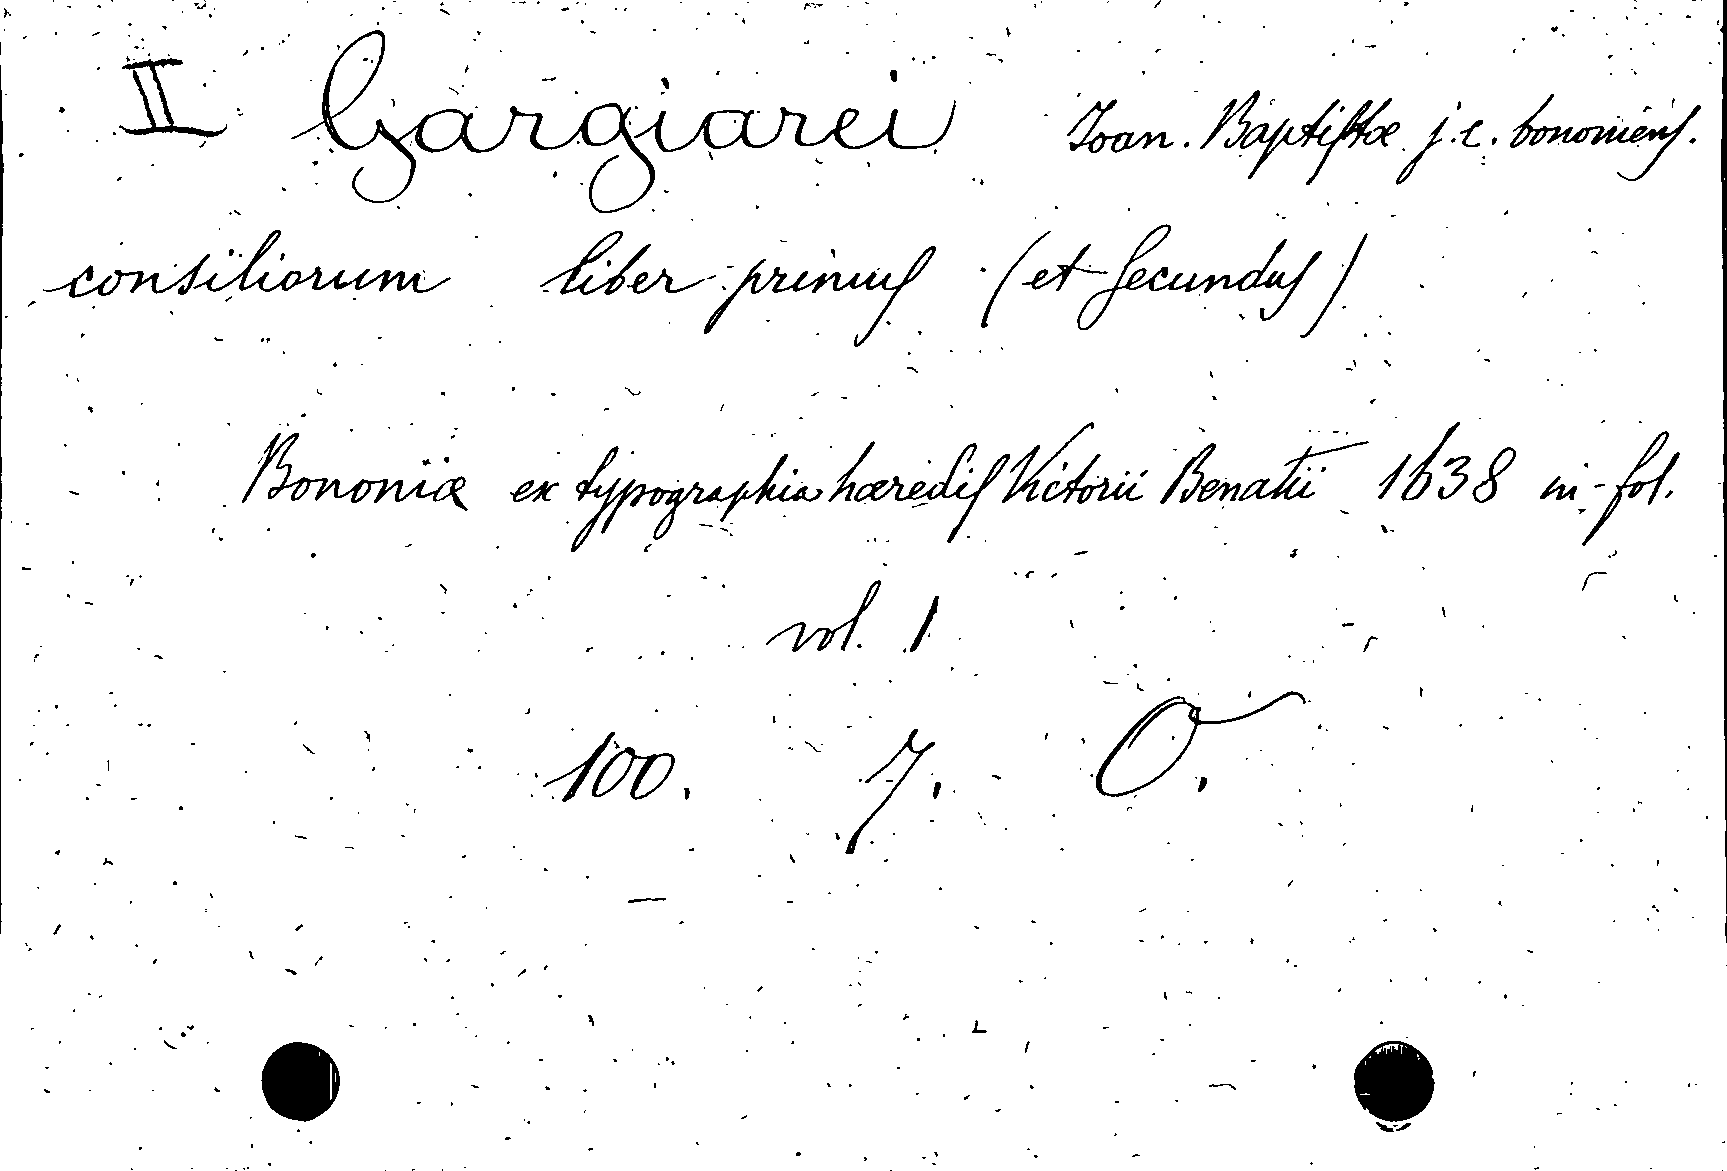 II Gargiarei Joan. Baptistæ j.c. bononiens.
consiliorum liber primus (et secundus)
Bononiæ ex typographia hæredis Victorii Benatii 1638 in-fol.
vol. 1
100. 7. O.